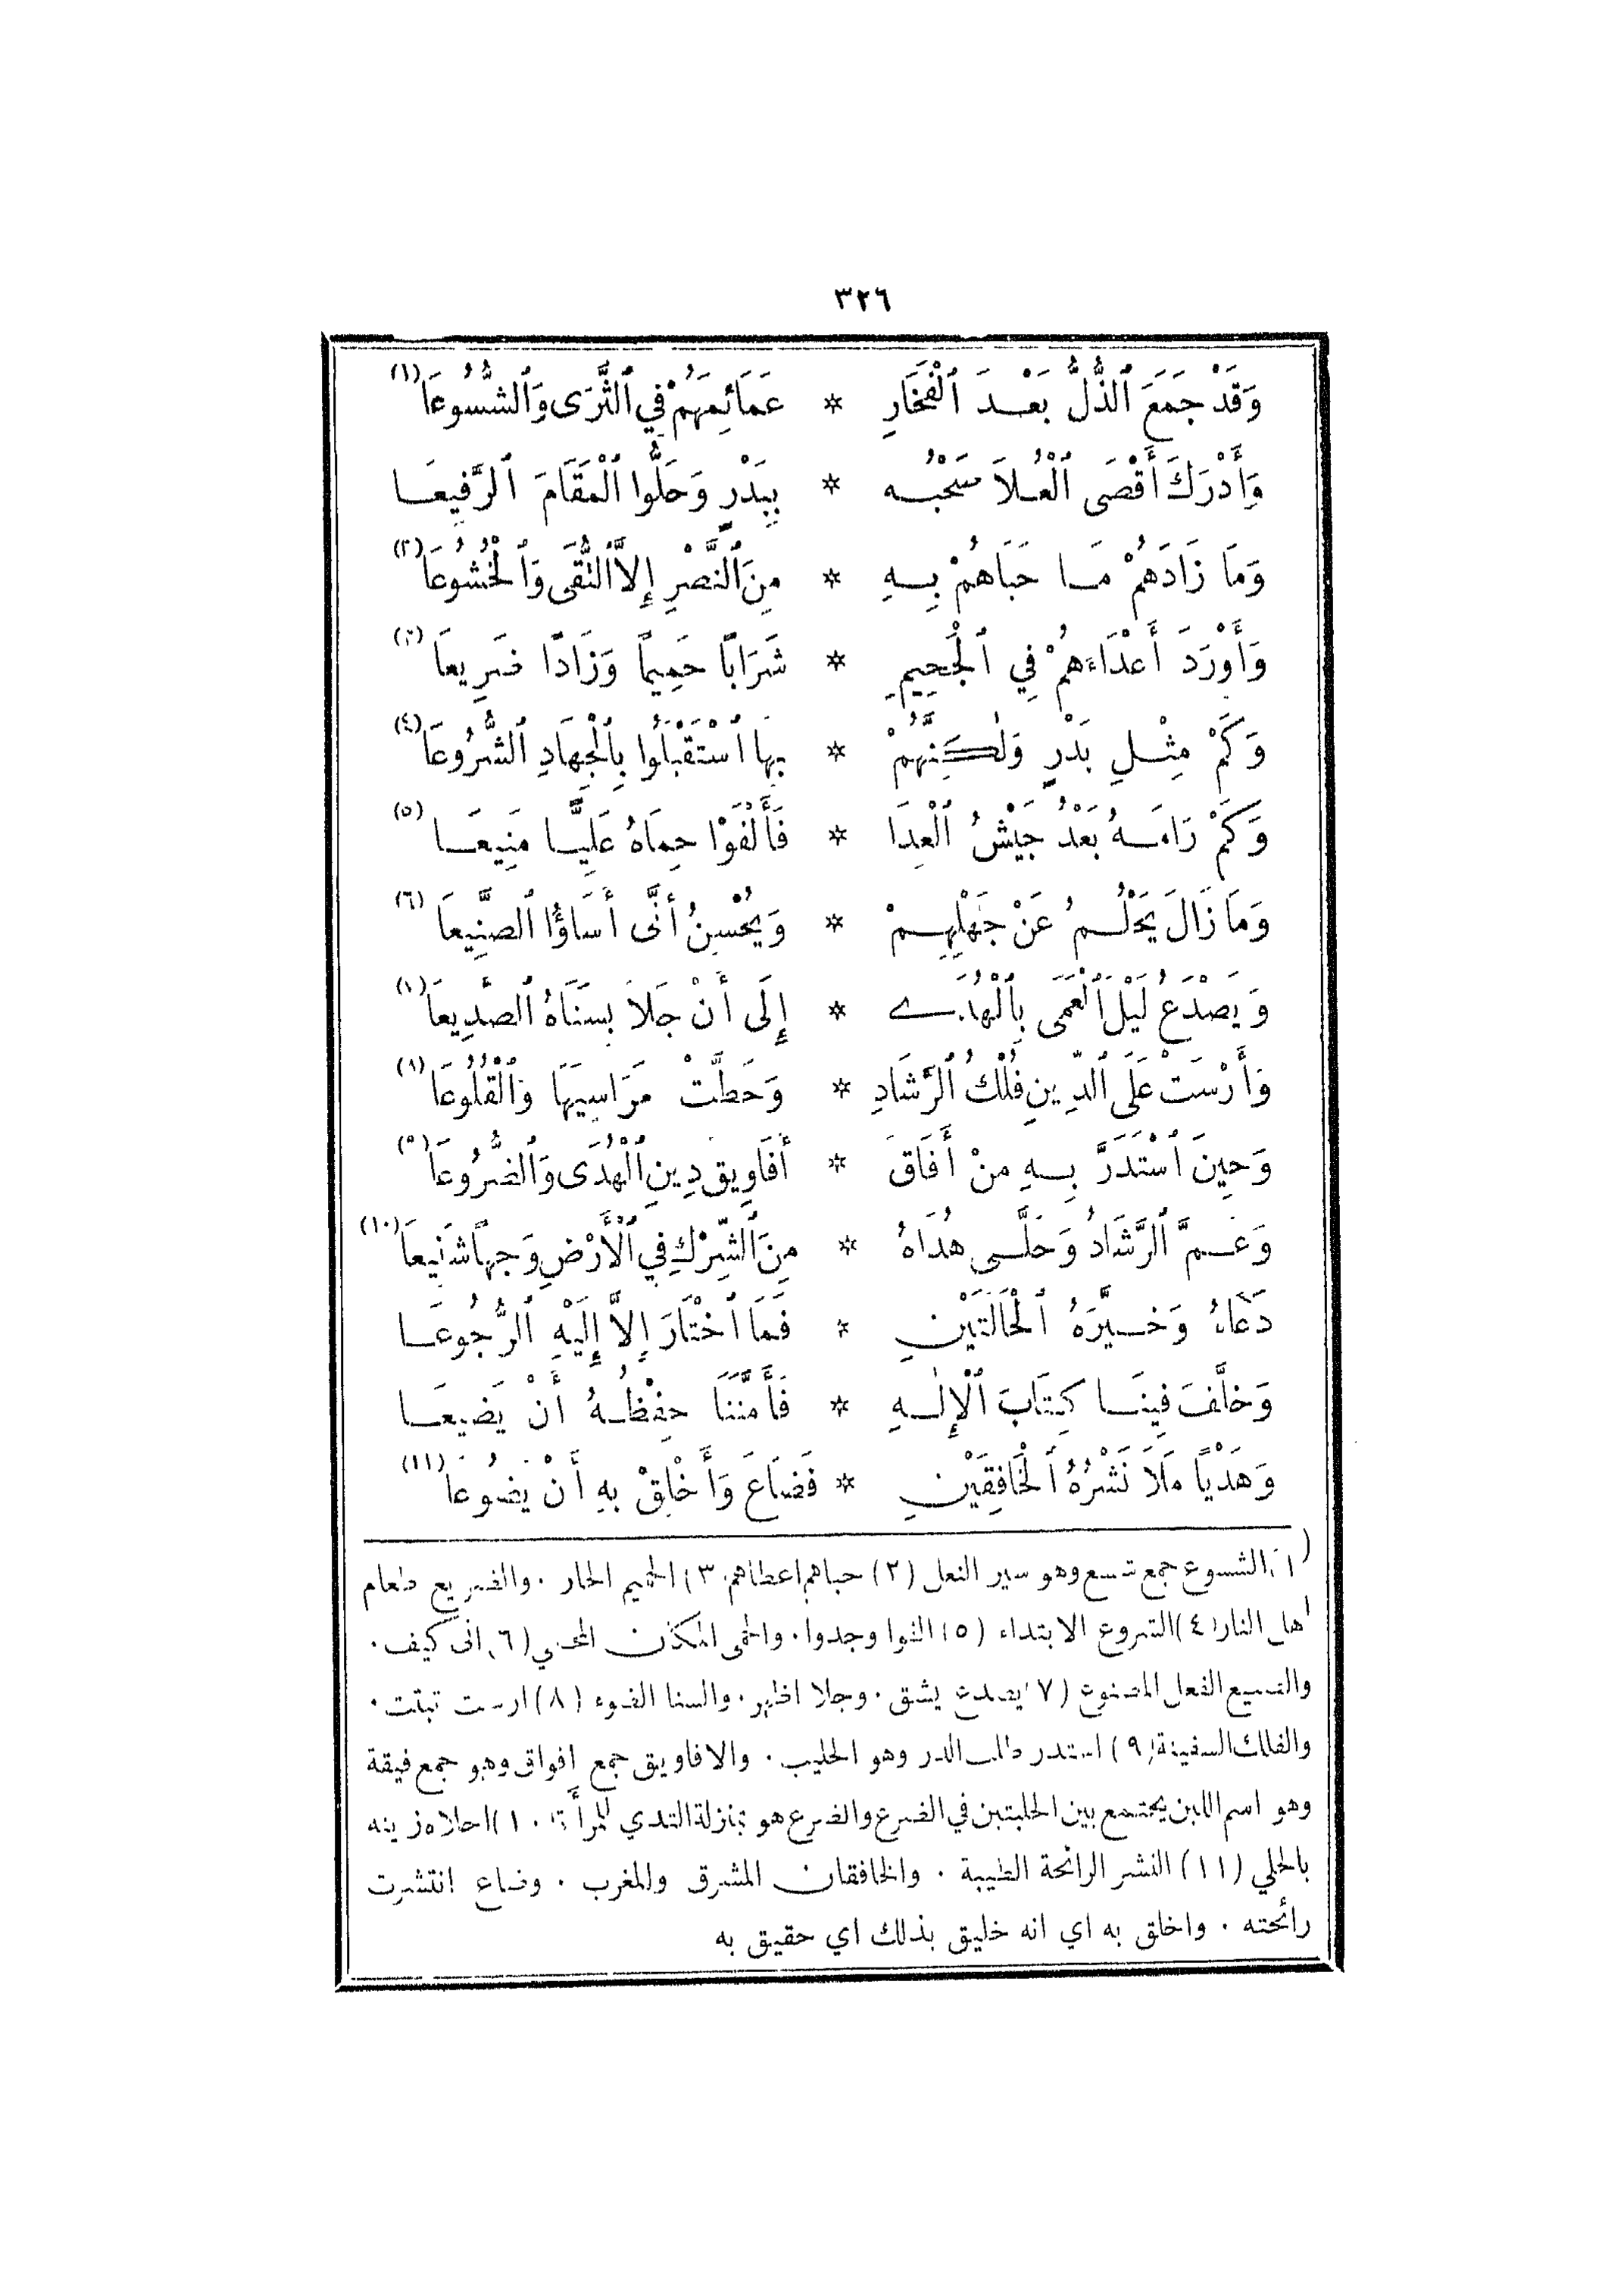 ٣٢٦
وَقَدْ جَمَعَ ٱلذُّلُّ بَعْدَ ٱلْفَخَارِ * عَمَائِمَهُمْ فِي ٱلثَّرَى وَٱلشُّسُوعَا (١)
وَأَدْرَكَ أَقْصَى ٱلْعُلَا صَحْبُه * بِبَدْرٍ وَحَلُّوا ٱلْمَقَامَ ٱلرَّفِيعَا
وَمَا زَادَهُمْ مَا حَبَاهُمْ بِهِ * مِنَ ٱلنَّصْرِ إِلاَّ ٱلتُّقَى وَٱلْخُشُوعَا (٢)
وَأَوْرَدَ أَعْدَاءَهُمْ فِي ٱلْجَحِيمِ * شَرَابًا حَمِيمًا وَزَادًا ضَرِيعَا (٣)
وَكَمْ مِثْلِ بَدْرٍ وَلٰكِنَّهُمْ * بِهَا ٱسْتَقْبَلُوا بِٱلْجِهَادِ ٱلشُّرُوعَا (٤)
وَكَمْ رَامَهُ بَعْدُ جَيْشُ ٱلْعِدَا * فَأَلْفَوْا حِمَاهُ عَلِيًّا مَنِيعَا (٥)
وَمَا زَالَ يَحْلُمُ عَنْ جَهْلِهِمْ * وَيُحْسِنُ أَنَّى أَسَاؤُا ٱلصَّنِيعَا (٦)
وَيَصْدَعُ لَيْلَ ٱلْعَمَى بِٱلْهُدَى * إِلَى أَنْ جَلاَ بِسَنَاهُ ٱلصَّدِيعَا (٧)
وَأَرْسَتْ عَلَى ٱلدِّينِ فُلْكُ ٱلرَّشَادِ * وَحَطَّتْ مَرَاسِيَهَا وَٱلْقُلُوعَا (٨)
وَحِينَ ٱسْتَدَرَّ بِهِ مَنْ أَفَاقَ * أَفَاوِيقَ دِينِ ٱلْهُدَى وَٱلضُّرُوعَا (٩)
وَعَمَّ ٱلرَّشَادُ وَحَلَّى هُدَاهُ * مِنَ ٱلشِّرْكِ فِي ٱلْأَرْضِ وَجْهًا شَنِيعَا (١٠)
دَعَاهُ وَخَيَّرَهُ ٱلْحَالَتَيْنِ * فَمَا ٱخْتَارَ إِلاَّ إِلَيْهِ ٱلرُّجُوعَا
وَخَلَّفَ فِينَا كِتَابَ ٱلْإِلٰهِ * فَأَمَّنَنَا حِفْظُهُ أَنْ يَضِيعَا
وَهَدْيًا مَلَا نَشْرُهُ ٱلْخَافِقَيْنِ * فَضَاعَ وَأَخْلِقْ بِهِ أَنْ يَضُوعَا (١١)
(١) الشسوع جمع شسع وهو سير النعل (٢) حباهم اعطاهم (٣) الحميم الحار . والضريع طعام
اهل النار (٤) الشروع الابتداء (٥) الفوا وجدوا . والحمى المكان المحمي (٦) انى كيف .
والصنيع الفعل المصنوع (٧) يصدع يشق . وجلا اظهر . والسنا الضوء (٨) ارست ثبتت .
والفلك السفينة (٩) استدر طلب الدر وهو الحليب . والافاويق جمع افواق وهو جمع فيقة
وهو اسم اللبن يجتمع بين الحلبتين في الضرع والضرع هو بمنزلة الثدي للمرأة (١٠) احلاه زينه
بالحلي (١١) النشر الرائحة الطيبة . والخافقان المشرق والمغرب . وضاع انتشرت
رائحته . واخلق به اي انه خليق بذلك اي حقيق به